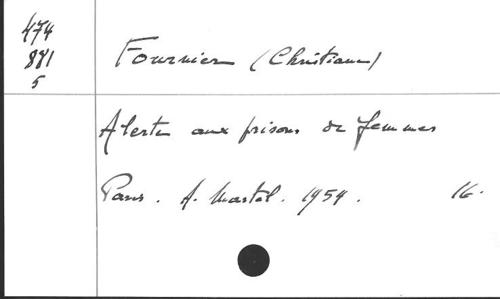 474
881
5
Fournier (Christiane)
Alerte aux prisons de femmes
Paris. A. Martel. 1954. 16.